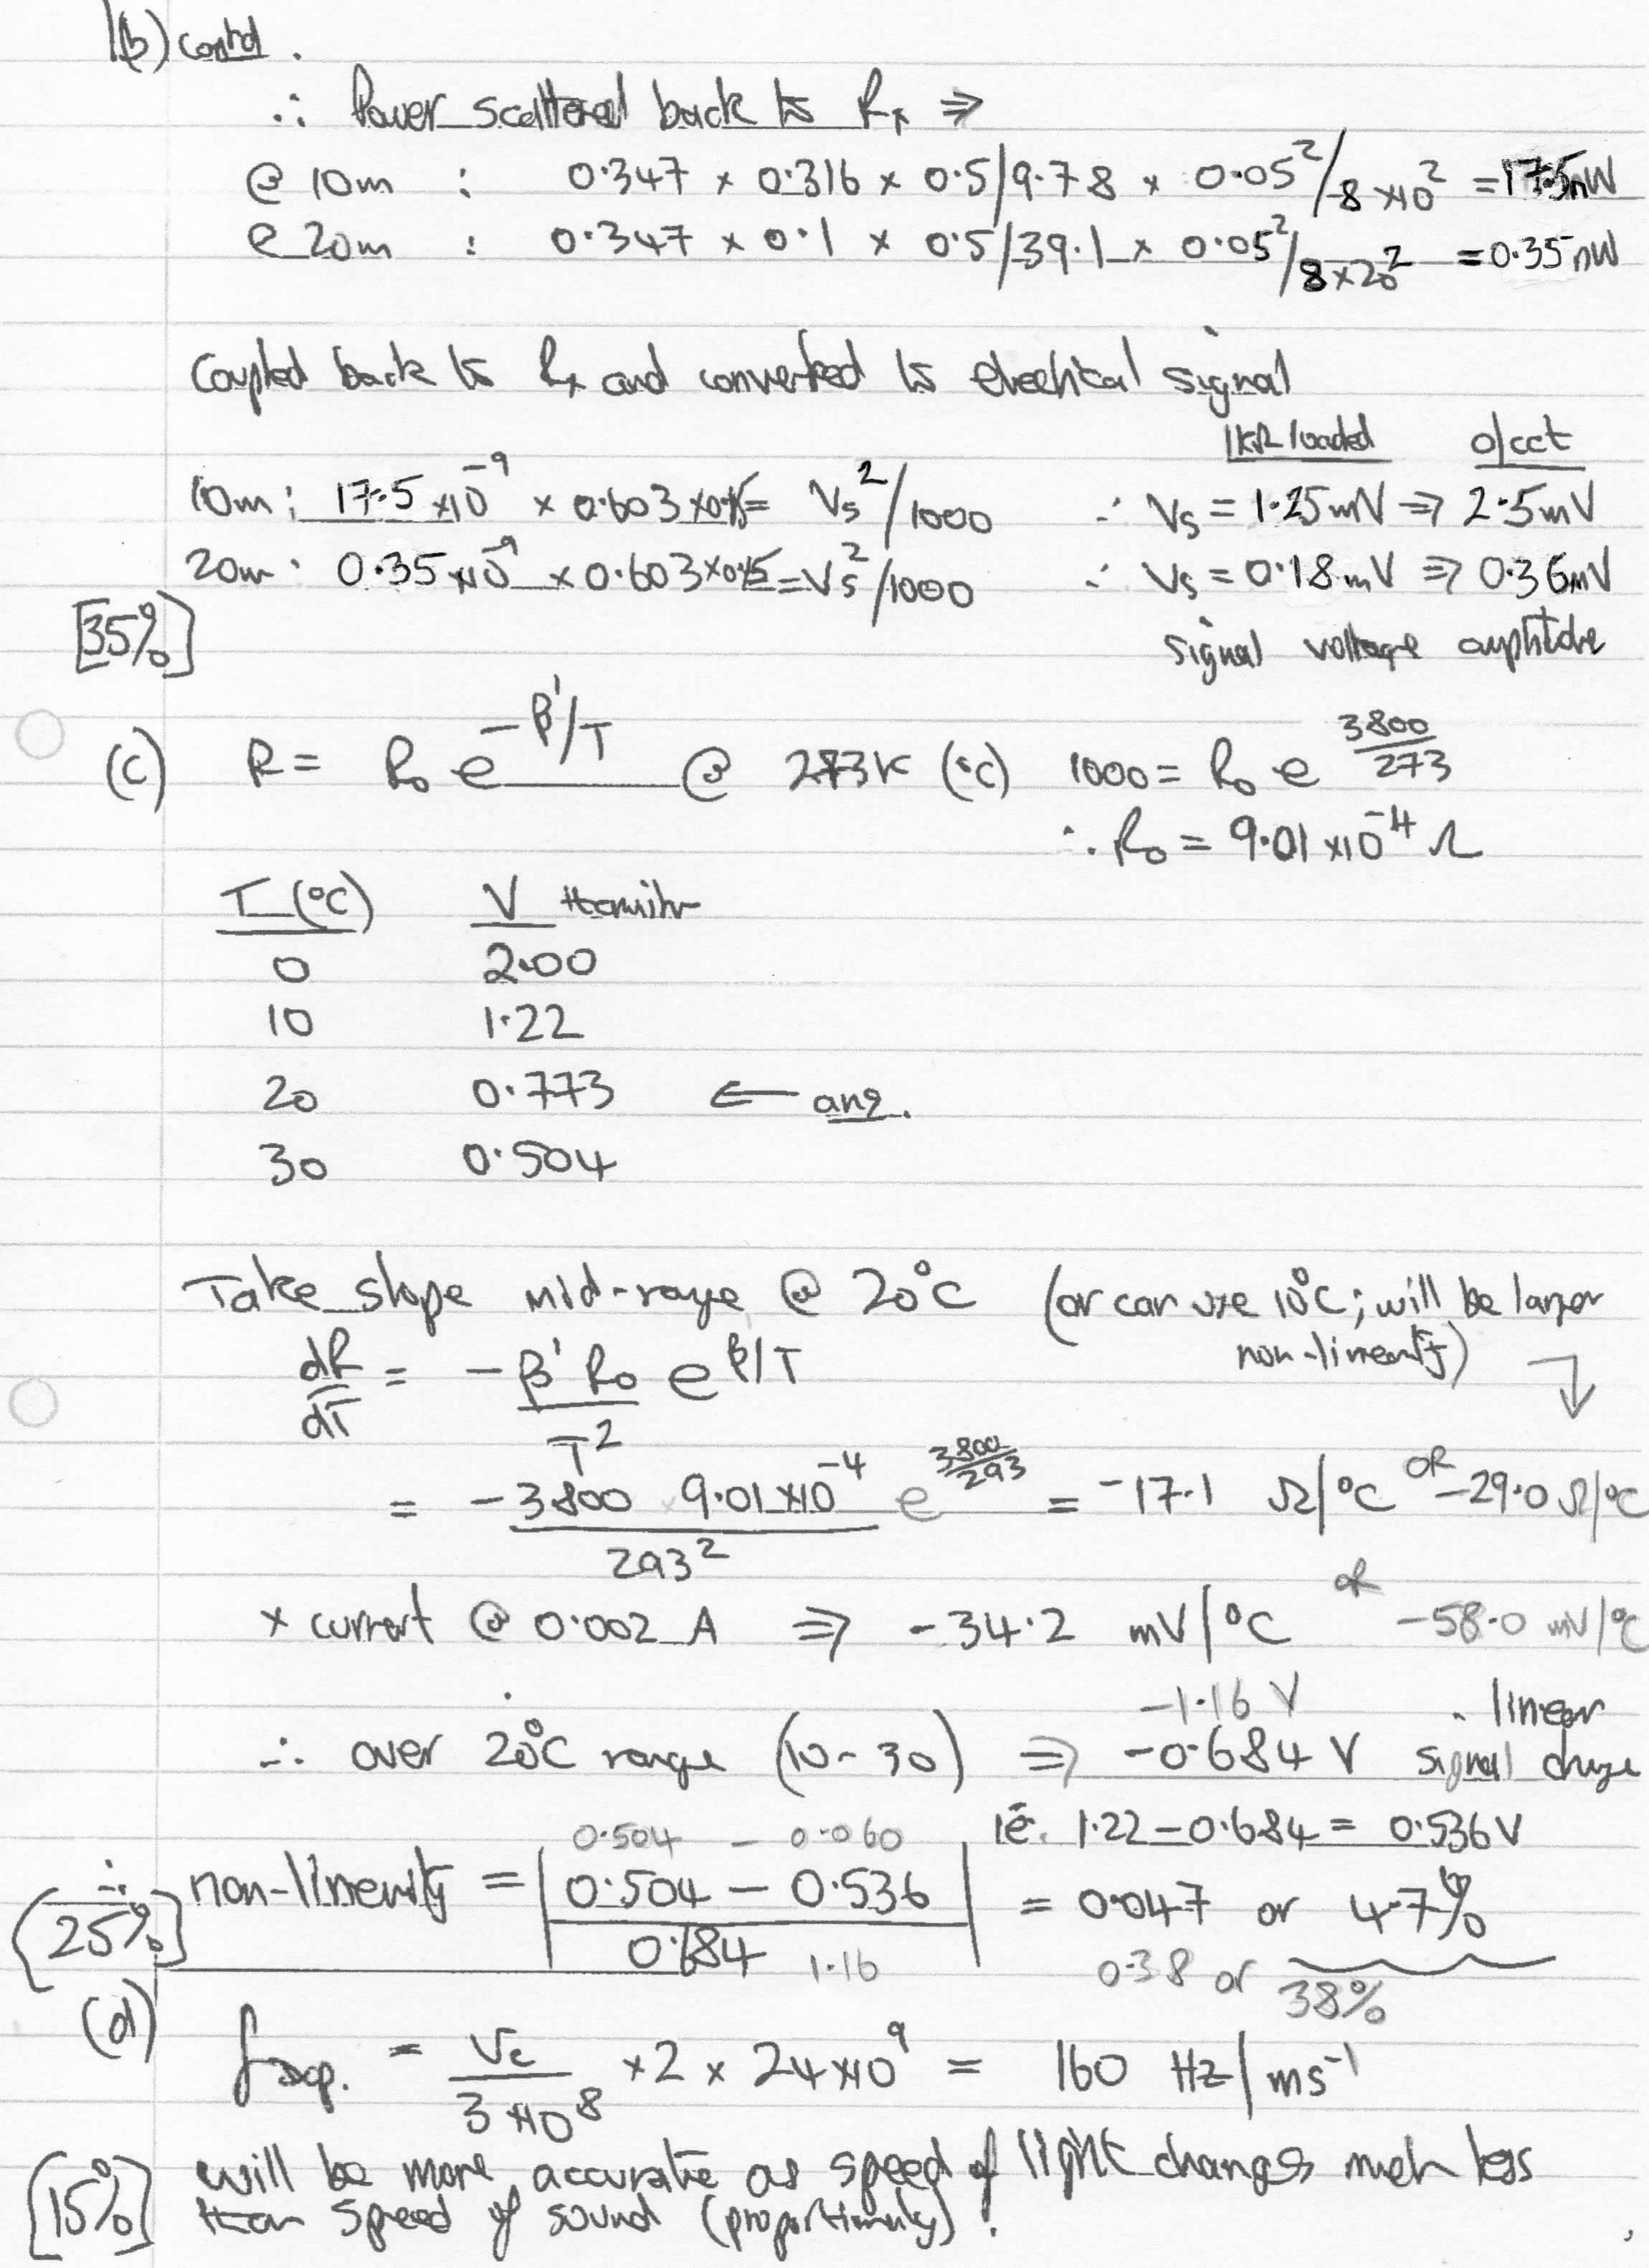 1(b) contd.
∴ Power scattered back to Rx ⇒
@ 10m : 0.347 × 0.316 × 0.5/9.78 × 0.05²/8×10² = 17.5nW
@ 20m : 0.347 × 0.1 × 0.5/39.1 × 0.05²/8×20² = 0.35nW
Coupled back to Rx and converted to electrical signal
1kΩ loaded o/cct
10m: 17.5 ×10⁻⁹ × 0.603 × 0.15 = Vs²/1000 ∴ Vs = 1.25mV ⇒ 2.5mV
20m: 0.35 ×10⁻⁹ × 0.603 × 0.15 = Vs²/1000 ∴ Vs = 0.18mV ⇒ 0.36mV
[35%] signal voltage amplitude
(c) R = R₀ e^(-β'/T) @ 273K (°C) 1000 = R₀ e^(3800/273)
∴ R₀ = 9.01 ×10⁻⁴ Ω
T (°C) V thermistor
0 2.00
10 1.22
20 0.773 ← ans.
30 0.504
Take slope mid-range @ 20°C (or can use 10°C; will be larger
non-linearity) ↓
dR/dT = -β'R₀/T² e^(β/T)
= -3800 × 9.01×10⁻⁴/293² e^(3800/293) = -17.1 Ω/°C or -29.0 Ω/°C
× current @ 0.002 A ⇒ -34.2 mV/°C or -58.0 mV/°C
-1.16 V
∴ over 20°C range (10-30) ⇒ -0.684 V linear signal change
ie. 1.22 - 0.684 = 0.536V
0.504 - 0.060
∴ non-linearity = |0.504 - 0.536 / 0.684| = 0.047 or 4.7%
[25%] 1.16 0.38 or 38%
(d) fDop. = Vc/3×10⁸ × 2 × 24×10⁹ = 160 Hz/ms⁻¹
will be more accurate as speed of light changes much less
[15%] than speed of sound (proportionately).